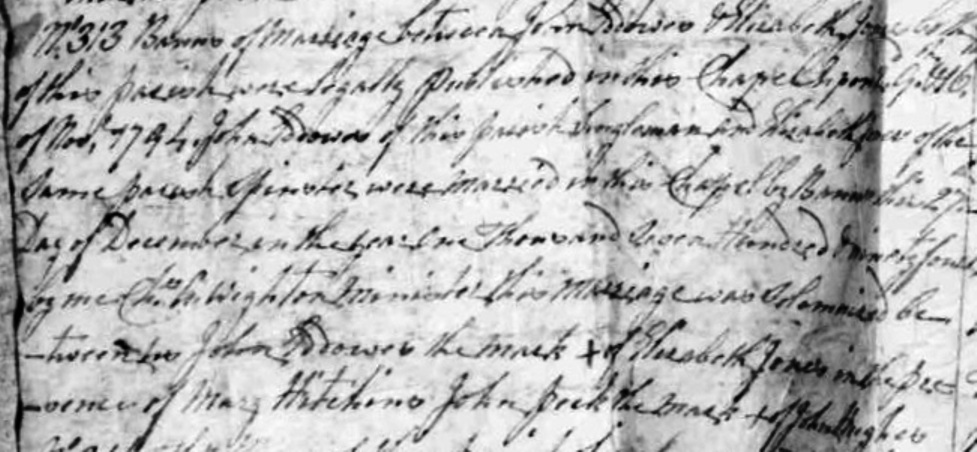 No. 313 Banns of Marriage between John Edowes & Elizabeth Jones both
of this parish were legally published in this Chapel upon
of Novr. 1794, John Edowes of this parish Singleman and Elizabeth Jones of the
Same parish Spinster were Married in this Chapel by Banns this
Day of December in the year One Thousand Seven Hundred & ninety four
by me Wighton Minister this Marriage was Solemnized be
-tween us John Edowes the mark + of Elizabeth Jones in the pre
-sence of Mary Hitchins John Peck the mark + of John Hughes